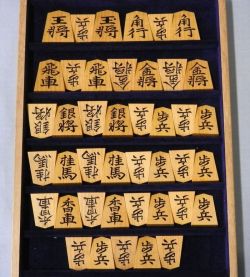 王将 歩兵 王将 歩兵 角行 角行
飛車 歩兵 飛車 金将 金将 金将 金将
銀将 銀将 銀将 銀将 歩兵 歩兵 歩兵 歩兵
桂馬 桂馬 桂馬 桂馬 歩兵 歩兵 歩兵 歩兵
香車 香車 香車 香車 歩兵 歩兵 歩兵 歩兵
歩兵 歩兵 歩兵 歩兵 歩兵